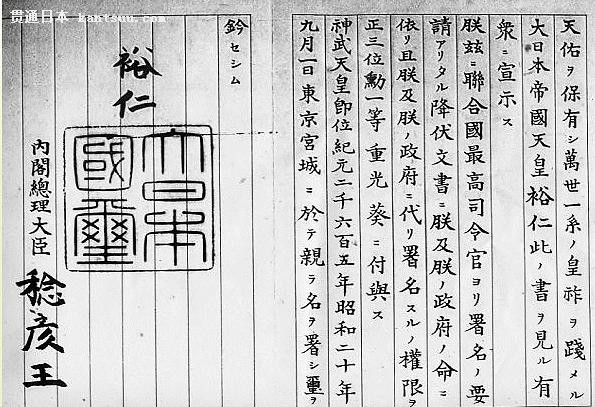 贯通日本 kantsuu.com
天佑ヲ保有シ萬世一系ノ皇祚ヲ踐メル
大日本帝國天皇裕仁此ノ書ヲ見ル有
衆ニ宣示ス
朕玆ニ聯合國最高司令官ヨリ署名ノ要
請アリタル降伏文書ニ朕及朕ノ政府ノ命ニ
依リ且朕及朕ノ政府ニ代リ署名スルノ權限ヲ
正三位勳一等重光葵ニ付與ス
神武天皇卽位紀元二千六百五年昭和二十年
九月一日東京宮城ニ於テ親ラ名ヲ署シ璽ヲ
鈐セシム
裕仁
大日本國璽
內閣總理大臣
稔彥王